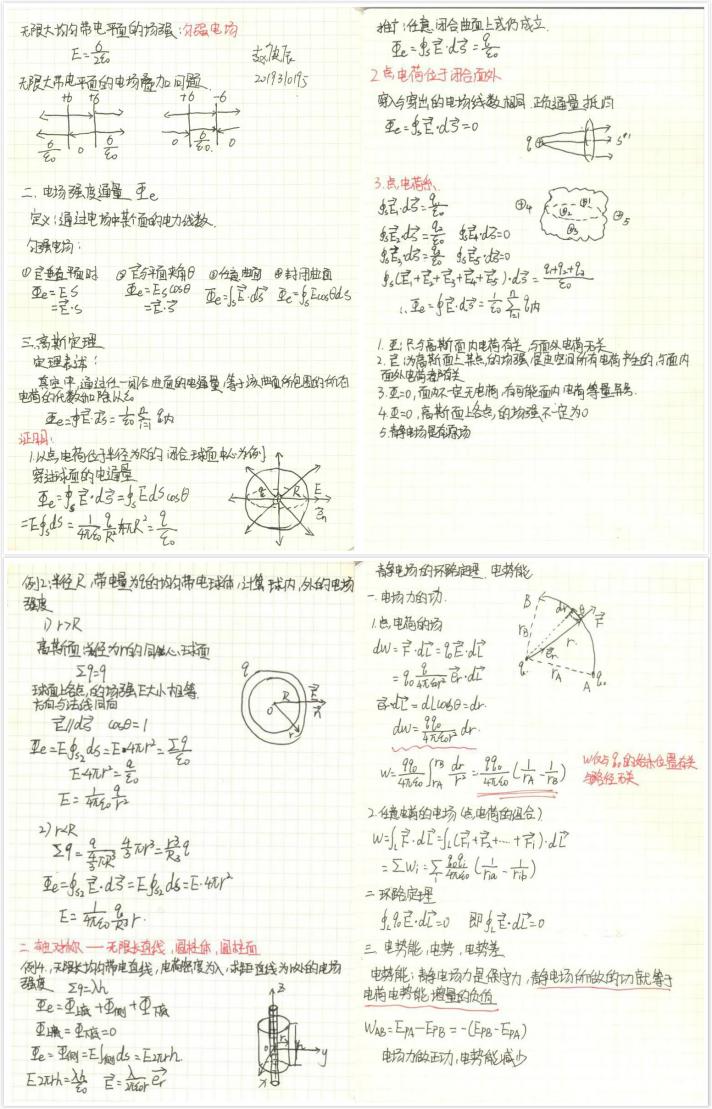 无限大均匀带电平面的场强:匀强电场
E=σ/2ε₀
2019310195
无限大带电平面的电场叠加问题.
+σ +σ +σ -σ
σ/ε₀ 0 σ/ε₀ 0 σ/ε₀ 0
二.电场强度通量 Φe
定义:通过电场中某个面的电力线数.
匀强电场:
①E⃗垂直平面时 ②E⃗与平面夹角θ ③任意曲面 ④封闭曲面
Φe=ES Φe=EScosθ Φe=∫s E⃗·dS⃗ Φe=∮s Ecosθds
=E⃗·S⃗ =E⃗·S⃗
三.高斯定理
定理表述:
真空中,通过任一闭合曲面的电通量,等于该曲面所包围的所有
电荷的代数和除以ε₀
Φe=∮E⃗·dS⃗=1/ε₀ Σ q内
证明:
1.以点电荷位于半径为R的闭合球面中心为例
穿过球面的电通量
Φe=∮s E⃗·dS⃗=∮s EdScosθ
=E∮s ds=1/4πε₀ q/R² 4πR²=q/ε₀
R E
推广:任意闭合曲面上式仍成立.
Φe=∮s E⃗·dS⃗=q/ε₀
2.点电荷位于闭合面外
穿入与穿出的电场线数相同,正负通量抵消
Φe=∮s E⃗·dS⃗=0
3.点电荷系
∮s E⃗₁·dS⃗=q₁/ε₀
∮s E⃗₂·dS⃗=q₂/ε₀ ∮s E⃗₄·dS⃗=0
∮s E⃗₃·dS⃗=q₃/ε₀ ∮s E⃗₅·dS⃗=0
∮s(E⃗₁+E⃗₂+E⃗₃+E⃗₄+E⃗₅)·dS⃗=q₁+q₂+q₃/ε₀
∴Φe=∮E⃗·dS⃗=1/ε₀ Σ q内
1.Φ:只与高斯面内电荷有关,与面外电荷无关
2.E⃗:为高斯面上某点的场强,是由空间所有电荷产生的,与面内
面外电荷都有关
3.Φ=0,面内不一定无电荷,有可能面内电荷等量异号.
4.Φ=0,高斯面上各点的场强不一定为0
5.静电场是有源场
例2:半径R,带电量为q的均匀带电球体,计算球内,外的电场
强度
1) r>R
高斯面:半径为r的同心球面
Σq=q
球面上各点的场强E大小相等.
方向与法线同向
E⃗//dS⃗ cosθ=1
Φe=E∮s₂ ds=E·4πr²=Σq/ε₀
E·4πr²=q/ε₀
E=1/4πε₀ q/r²
q R O r E⃗ n⃗
2) r<R
Σq=q/(4/3 πR³) 4/3 πr³=r³/R³ q
Φe=∮s₂ E⃗·dS⃗=E∮s₂ ds=E·4πr²
E=1/4πε₀ q/R³ r.
二.轴对称——无限长直线,圆柱体,圆柱面
例4.无限长均匀带电直线,电荷密度为λ,求距直线为r处的电场
强度 Σq=λh
Φe=Φ上底+Φ侧+Φ下底
Φ上底=Φ下底=0
Φe=Φ侧=E∫侧 ds=E2πrh.
E2πrh=λh/ε₀ E⃗=λ/2πε₀r e⃗r
z y
静电场的环路定理 电势能
一.电场力的功.
1.点电荷的场
dW=F⃗·dl⃗=q₀E⃗·dl⃗
=q₀ q/4πε₀r² e⃗r·dl⃗
e⃗r·dl⃗=dlcosθ=dr.
dW=qq₀/4πε₀r² dr.
W=qq₀/4πε₀ ∫rA rB dr/r²=qq₀/4πε₀(1/rA-1/rB)
W仅与q₀的始末位置有关
与路径无关
B dr θ F⃗ rB r e⃗r q rA A q₀
2.任意电荷的电场(点电荷的组合)
W=∫L F⃗·dl⃗=∫L(F⃗₁+F⃗₂+…+F⃗i)·dl⃗
=ΣWi=Σ q₀qi/4πε₀(1/ria-1/rib)
二.环路定理
∮L q₀E⃗·dl⃗=0 即∮L E⃗·dl⃗=0
三.电势能,电势,电势差
电势能:静电场力是保守力,静电场所做的功就等于
电荷电势能增量的负值
WAB=EPA-EPB=-(EPB-EPA)
电场力做正功,电势能减少